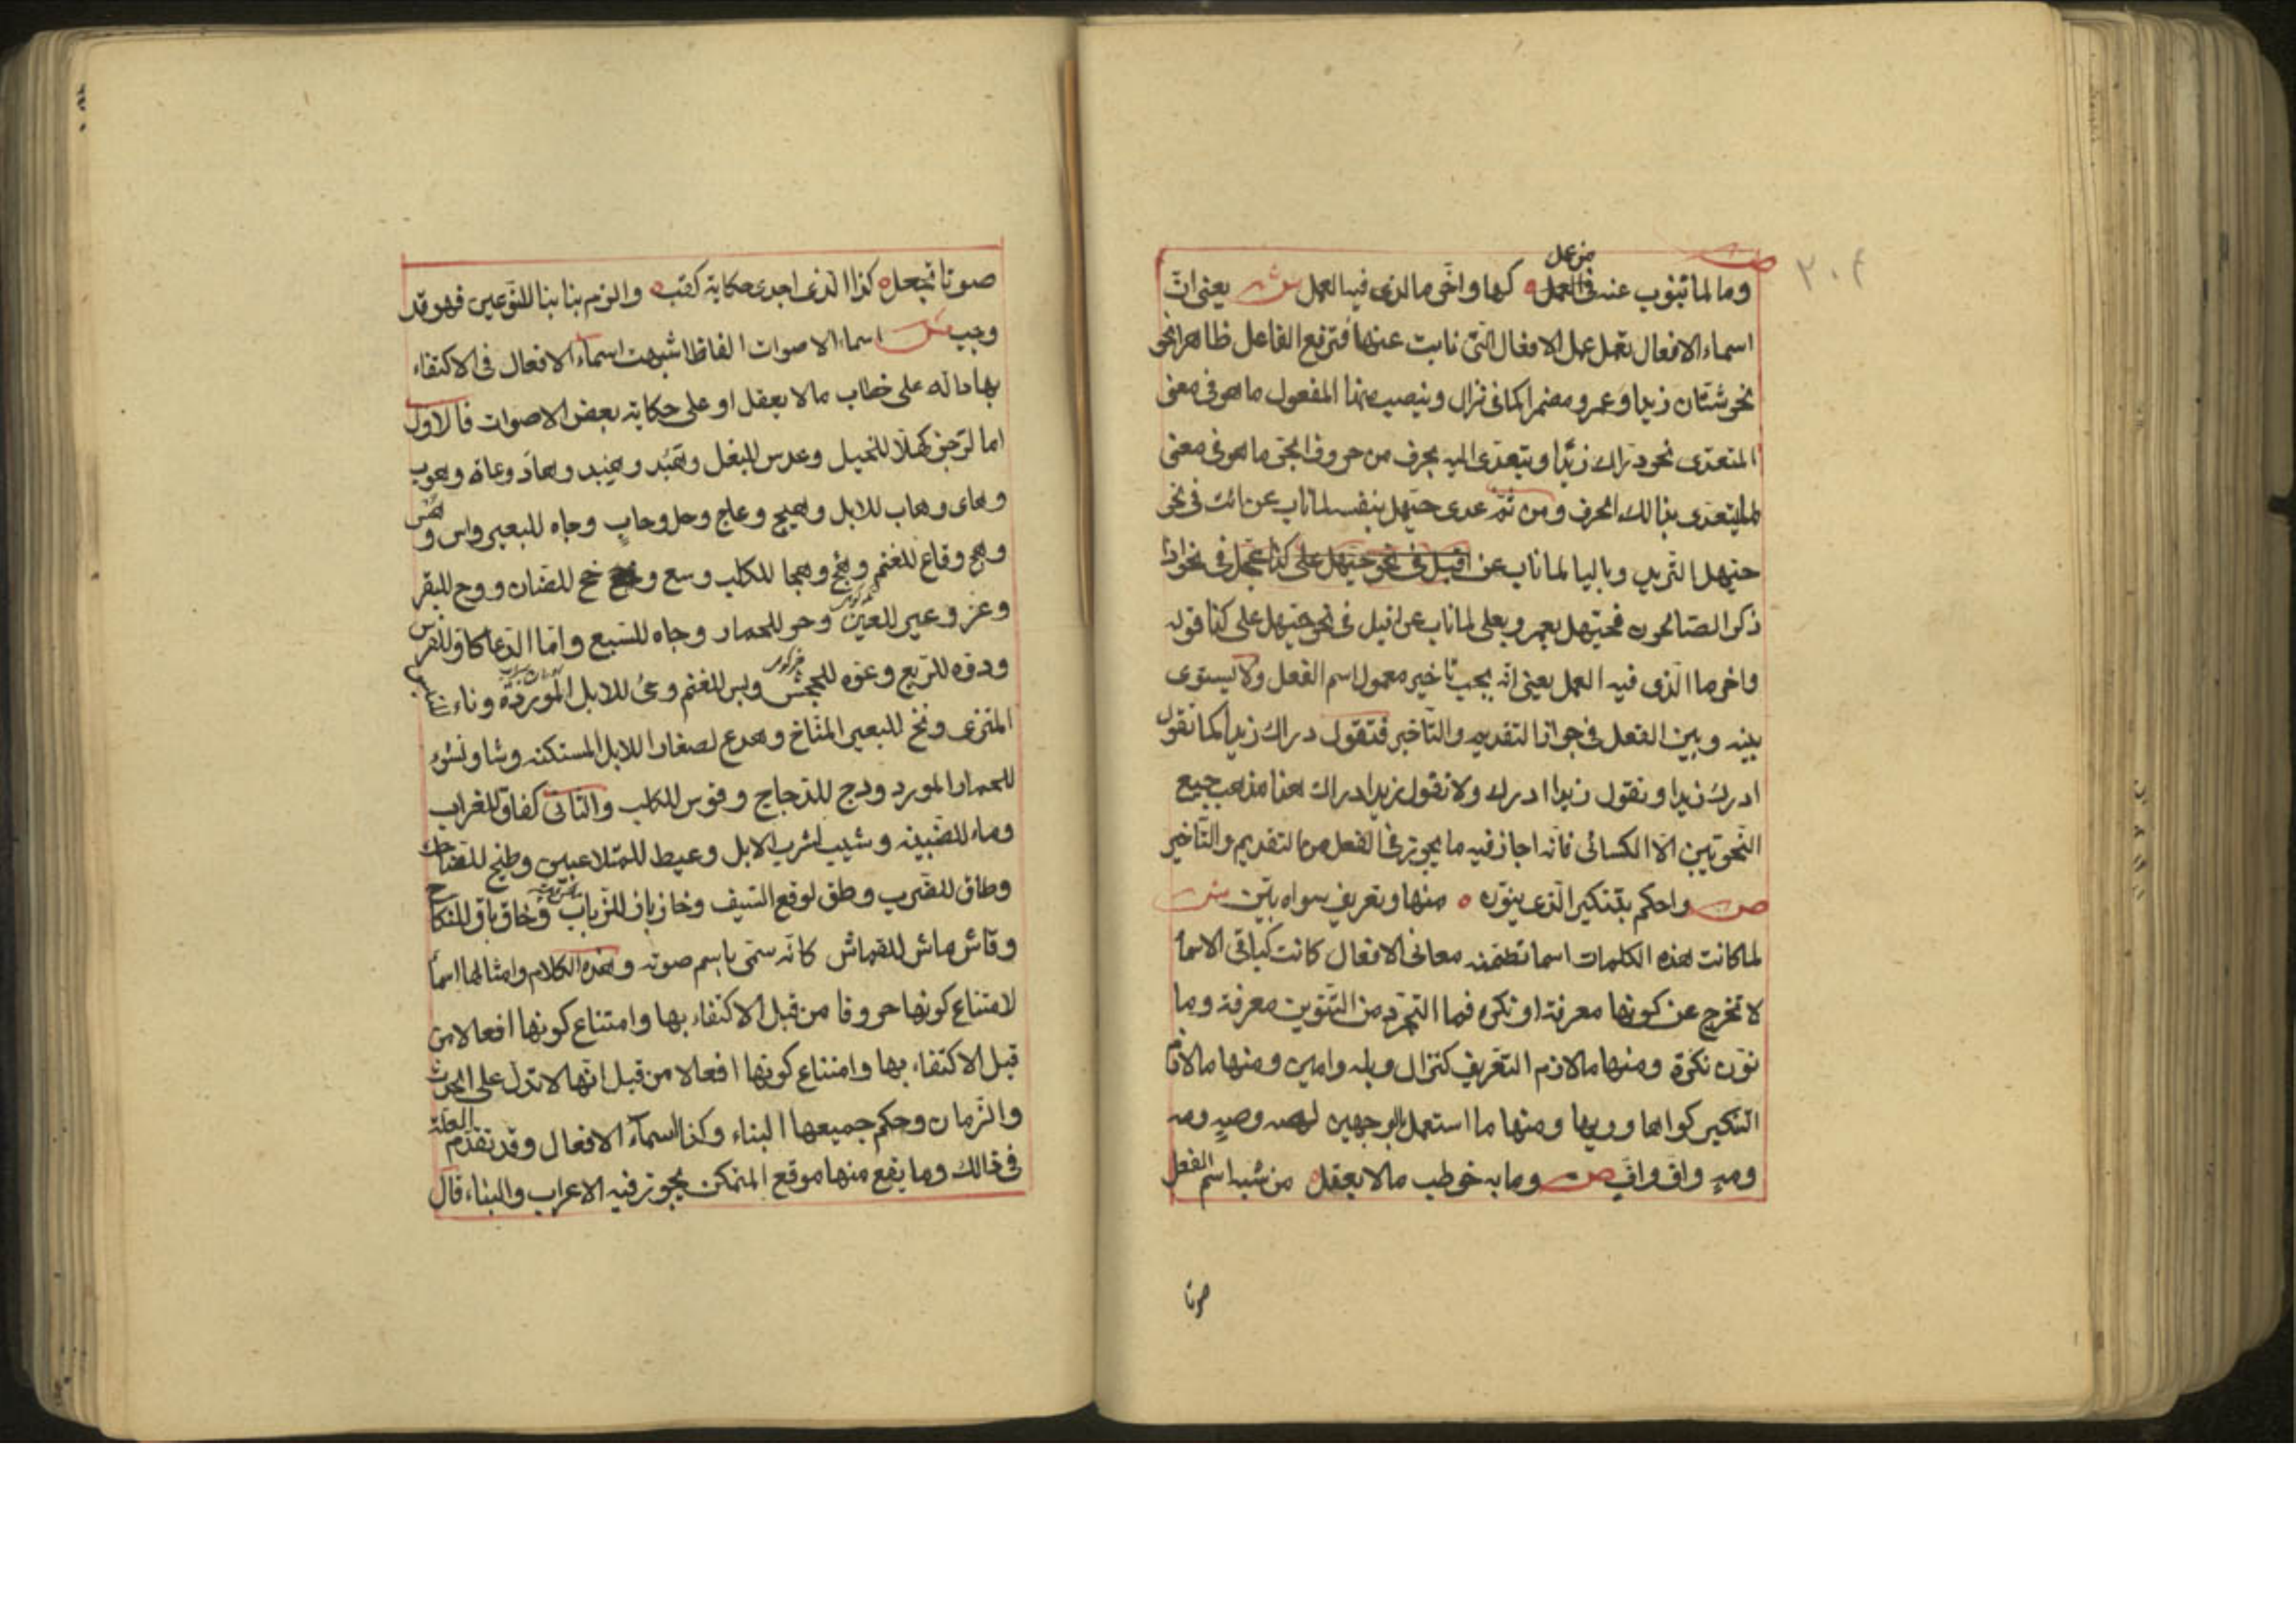 ٢٠٤
ص
وما لما تنوب عنه من عمل العمل لها واخّر ما لذى فيه العمل ش يعنى انّ
اسماء الافعال تعمل عمل الافعال الّتى نابت عنها فترفع الفاعل ظاهرا نحو
نحو شتّان زيد وعمرو ومضمرا كما فى نزال وينصب منها المفعول ما هو فى معنى
المتعدّى نحو دراك زيدا ويتعدّى اليه بحرف من حروف الجرّ ما هو فى معنى
لما يتعدى بذالك الحرف ومن ثمّ عدى حيّهل بنفسه لمّا ناب عن ائت فى نحو
حيّهل الثريد وباليا لما ناب عن اقبل فى نحو حيّهل على كذا عجّل فى نحو اذا
ذكر الصّالحون فحيّهل بعمر وبعلى لما ناب عن اقبل فى نحو حيّهل على كذا قوله
واخر ما الّذى فيه العمل يعنى انّه يجب تأخير معمول اسم الفعل ولا يستوى
بينه وبين الفعل فى جواز التقديم والتّأخير فتقول دراك زيدا كما تقول
ادرك زيدا وتقول زيدا ادرك ولا تقول زيدا دراك هذا مذهب جميع
النّحويّين الّا الكسائى فانّه اجاز فيه ما يجوز فى الفعل من التقديم والتّاخير
ص واحكم بتنكير الّذى ينوّن منها وتعريف سواه بيّن ش
لما كانت هذه الكلمات اسما تضمّنه معانى الافعال كانت كباقى الاسما
لا تخرج عن كونها معرفة او نكره فما التجرّد من التّنوين معرفة وما
نوّن نكرة ومنها ما لازم التعريف كنزال وبله وامين ومنها ما لازم
التنكير كواها وويها ومنها ما استعمل بالوجهين كصه وصهٍ ومه
ومهٍ وافّ وافٍّ ص وما به خوطب ما لا يعقل من شبه اسم الفعل
صوتا
صوتا يجعل كذا الذى اجدى حكاية كقب والزم بنا بنا للنّوعين فهو قد
وجب ش اسماء الاصوات الفاظ اشبهت اسماء الافعال فى الاكتفاء
بها دالّه على خطاب ما لا يعقل او على حكاية بعض الاصوات فالاول
امّا لزجر كهلّا للخيل وعدس للبغل وهيد وهاد وعاه وهوب
وهاى وهاب للابل وهيج وعاج وحل وحاب وجاه للبعير واس وهس
وهج وقاع للغنم وهج وهجا للكلب وسع وخح للضان ووح للبقر
وعز وعيز للعنز وحر للحمار وجاه للسّبع وامّا الدّعا كاو للفرس
ودوه للرّبع وعوه للجحش وبس للغنم وجئ للابل الموردة وتاء
المنزى ونخ للبعير المنّاخ وهدع لصغار الابل المستكنه وشا وتشوء
للحمار المورد ودج للدّجاج وقوس للكلب والثانى كغاق للغراب
وماء للظّبية وشيب لشرب الابل وعيط للمتلاعبين وطيخ للضّاحك
وطاق للضرب وطق لوقع السّيف وخاز باز للذّباب وخاق باق للنكاح
وقاش ماش للقماش كانّه سمّى باسم صوته وهذه الكلام وامثالها اسما
لامتناع كونها حروفا من قبل الاكتفاء بها وامتناع كونها افعالا من
قبل الاكتفاء بها وامتناع كونها افعالا من قبل انّها لا تدل على الحدث
والزّمان وحكم جميعها البناء وكذا اسماء الافعال وقد تقدّم العلة
فى ذالك وما يقع منها موقع المتمكن يجوز فيه الاعراب والبناء قال